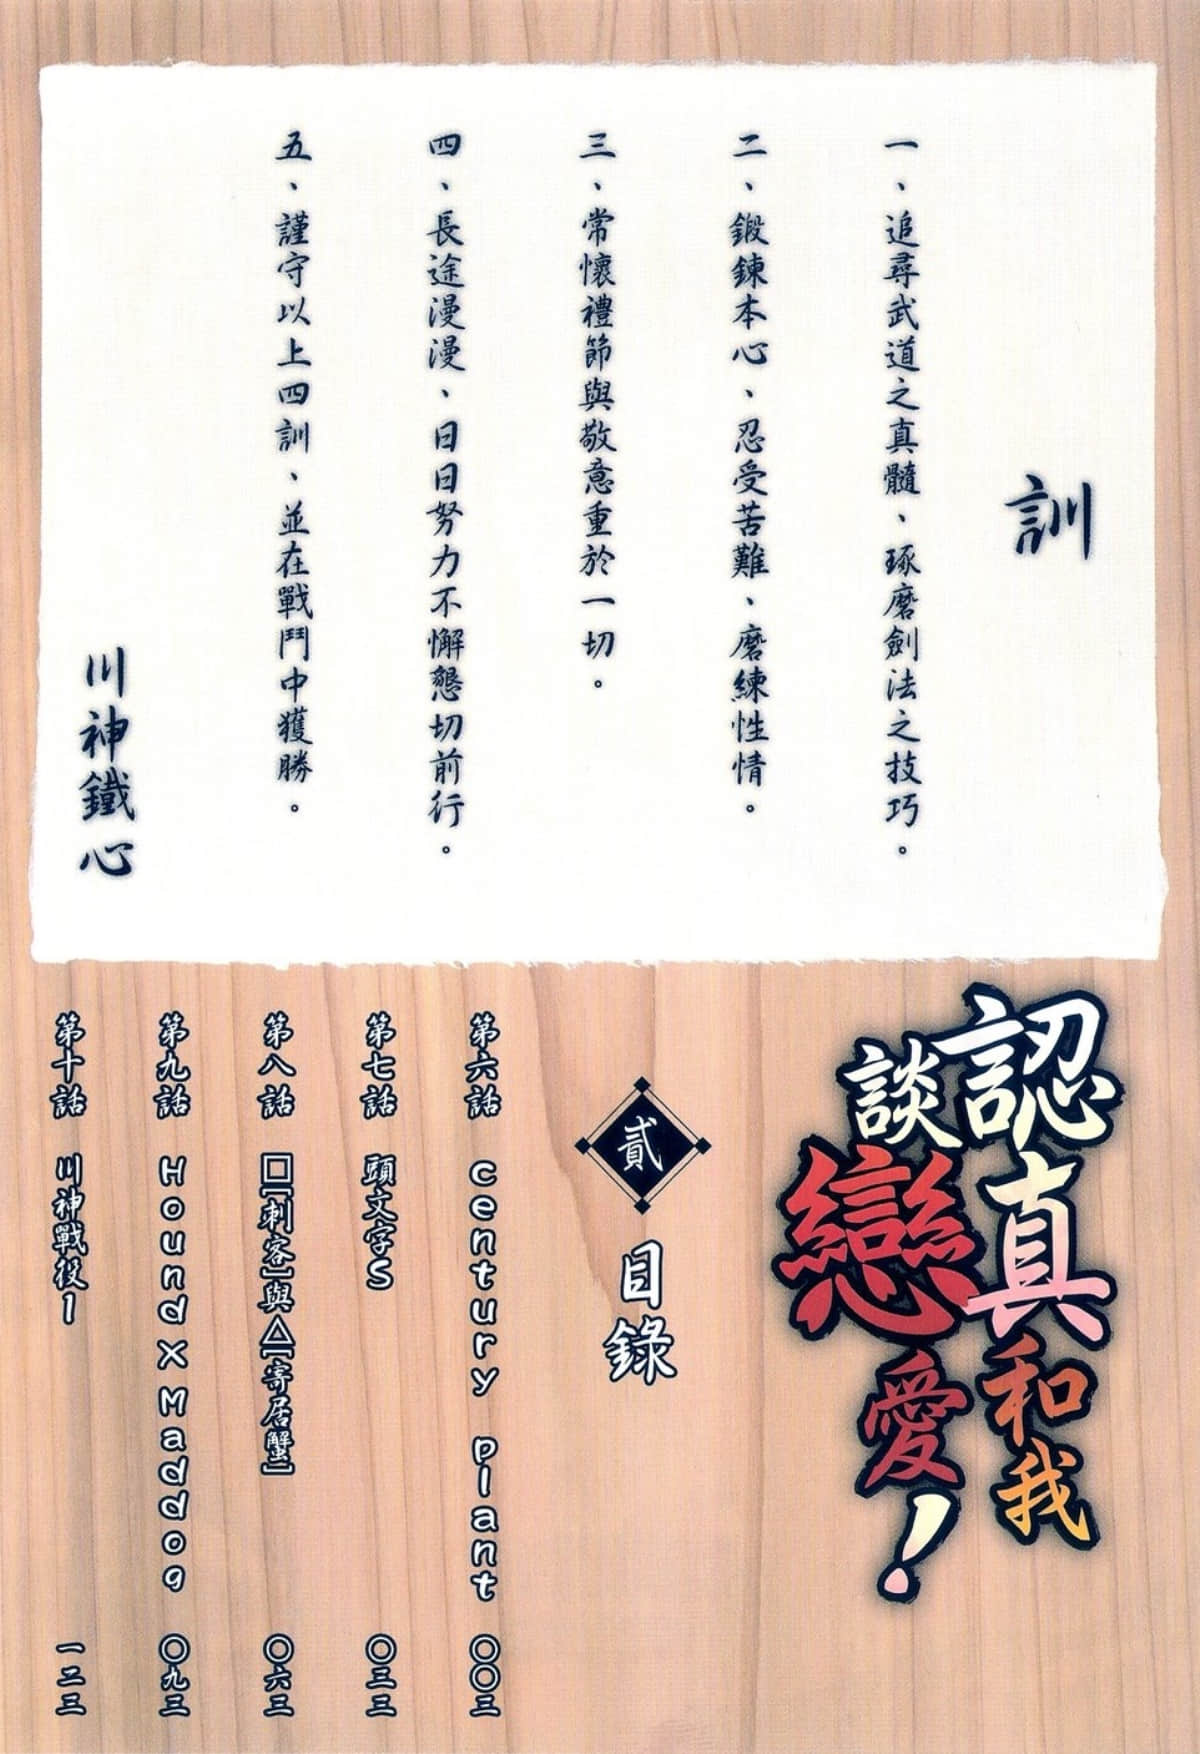 訓
一、追尋武道之真髓、琢磨劍法之技巧。
二、鍛鍊本心、忍受苦難、磨練性情。
三、常懷禮節與敬意重於一切。
四、長途漫漫、日日努力不懈懇切前行。
五、謹守以上四訓、並在戰鬥中獲勝。
川神鐵心
認真和我
談戀愛!
貳 目錄
第六話 century plant 〇〇三
第七話 頭文字S 〇三三
第八話 □[刺客]與△[寄居蟹] 〇六三
第九話 Hound x Maddog 〇九三
第十話 川神戰役1 一二三